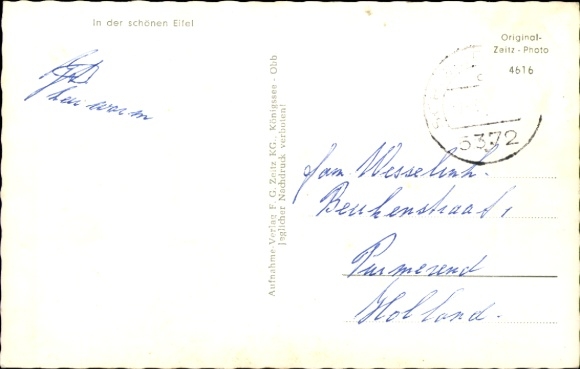 In der schönen Eifel
Original-
Zeitz-Photo
4616
5372
heiß warm
Aufnahme-Verlag F. G. Zeitz KG., Königssee - Obb
Jeglicher Nachdruck verboten!
Fam. Wesselink.
Beukenstraat 1
Purmerend
Holland.